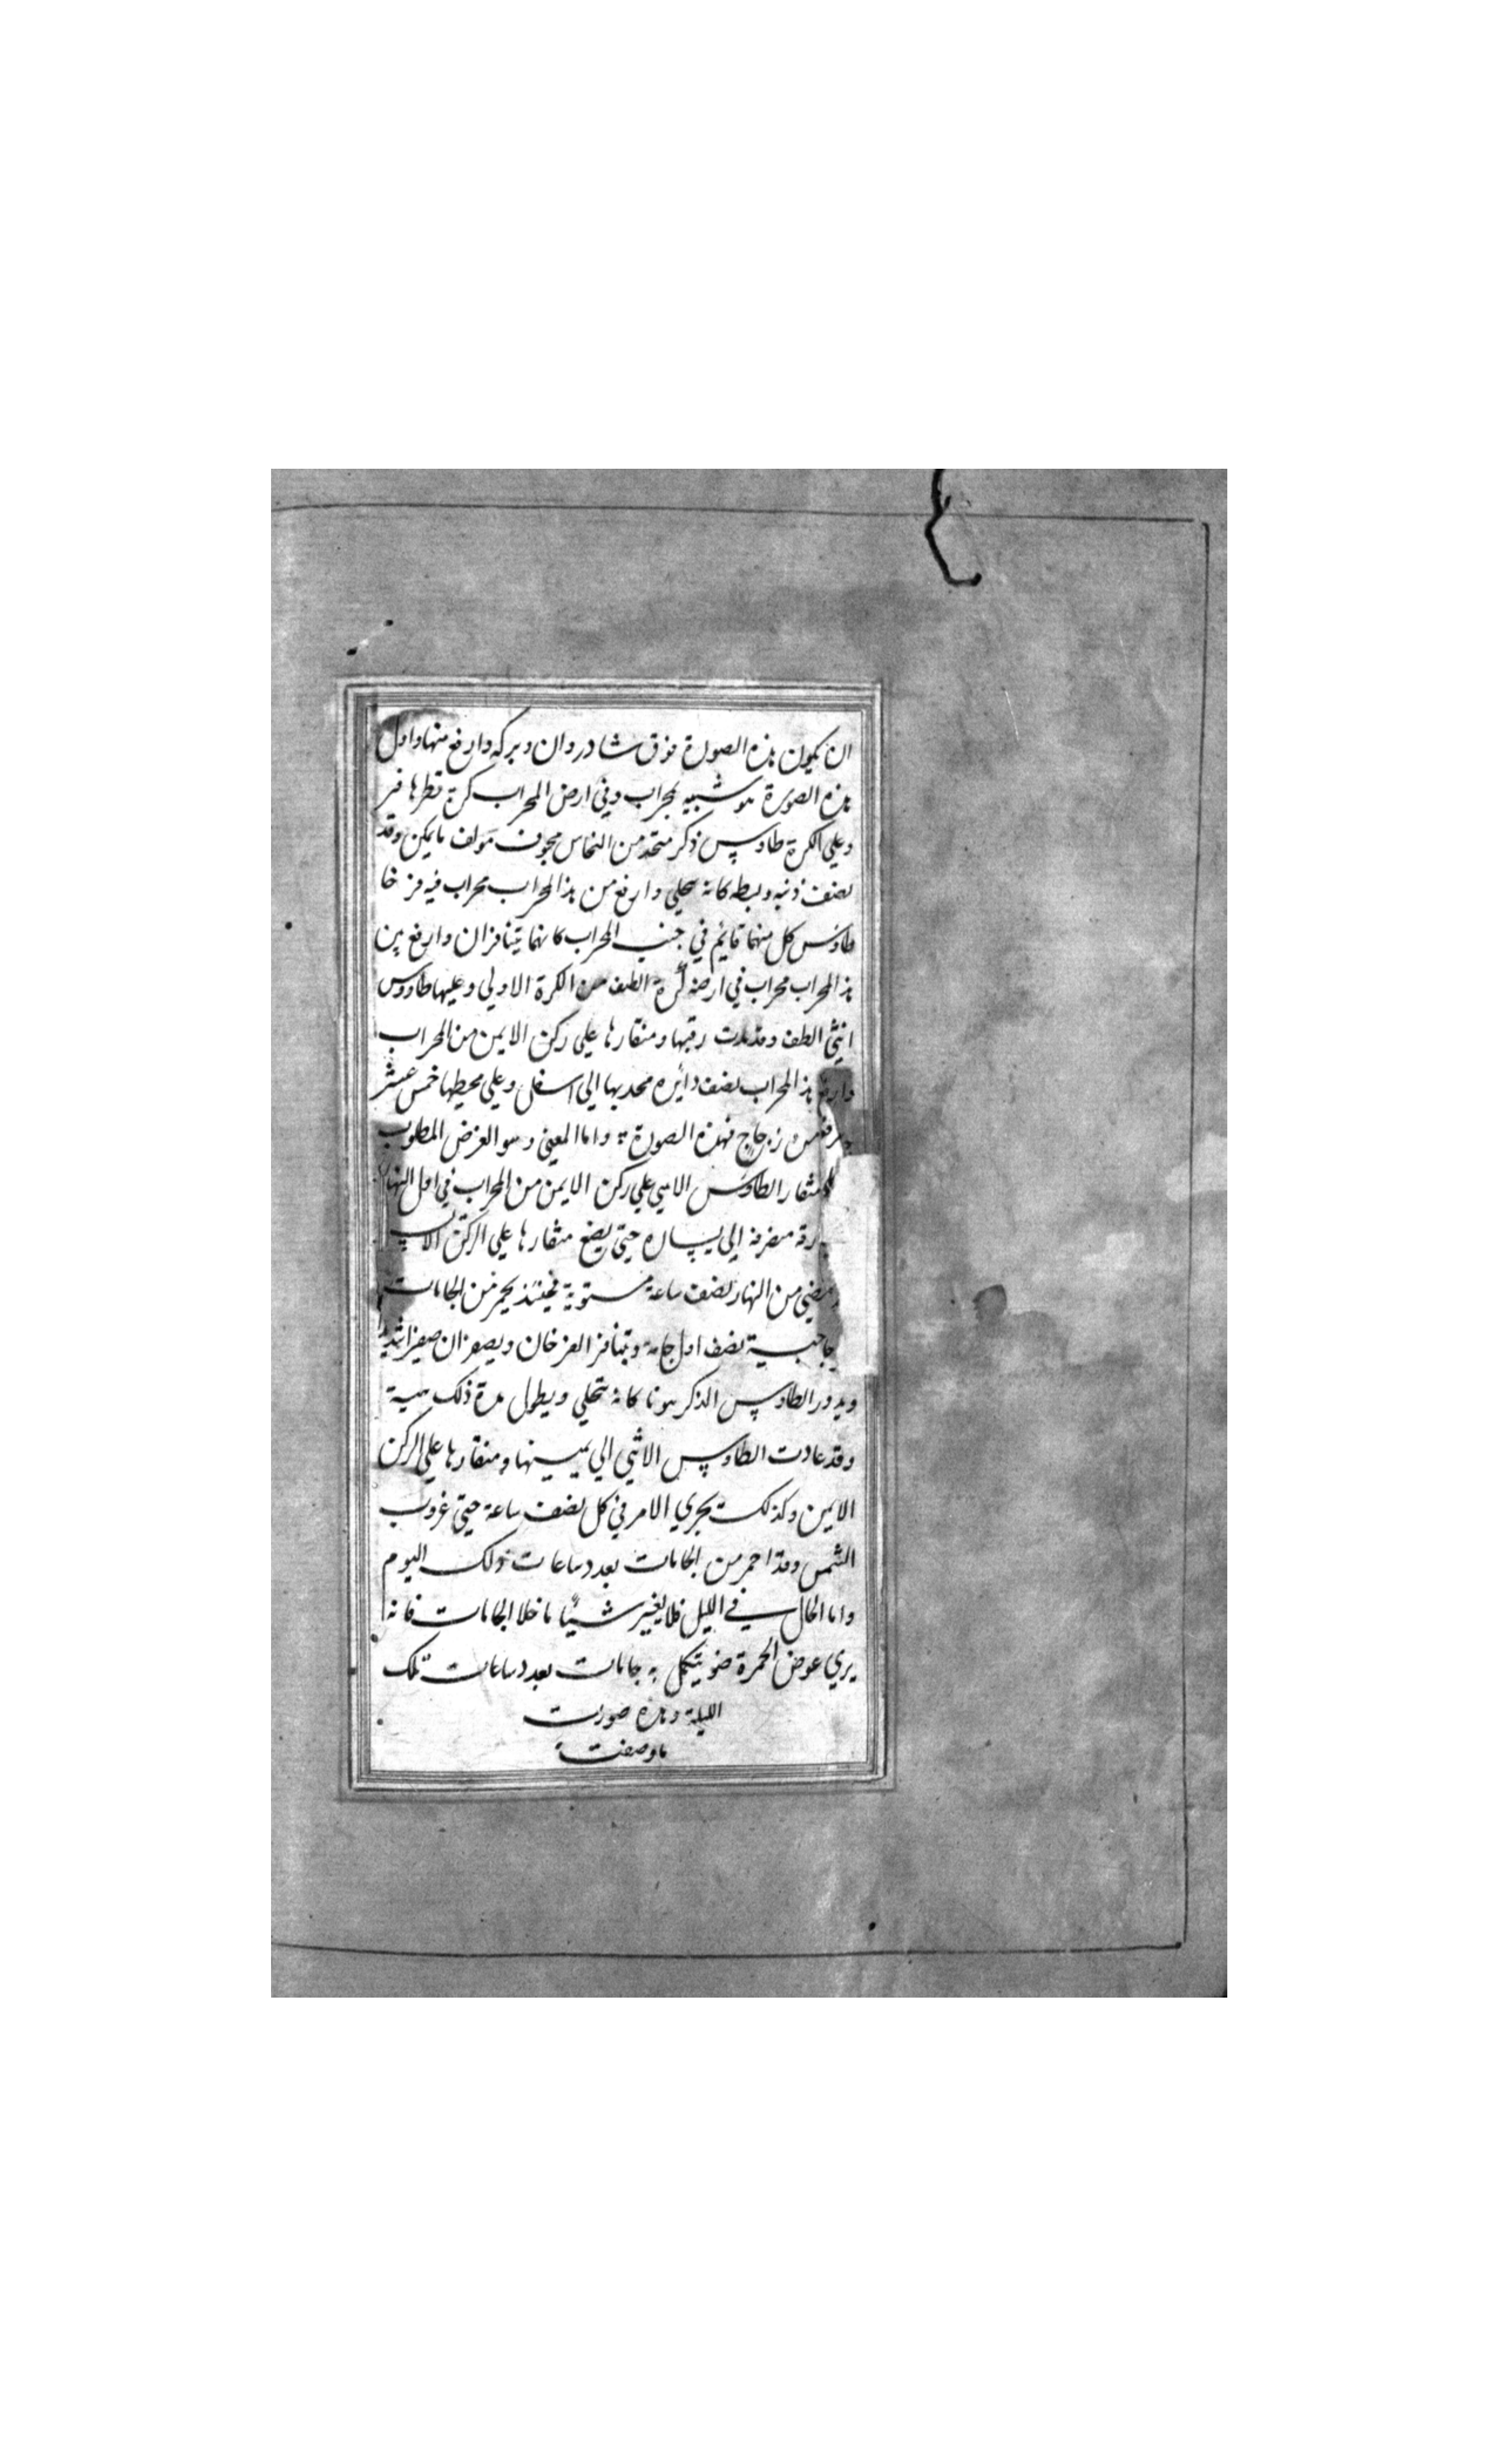 ان يكون هذه الصورة فوق شادروان وبركه وارفع منها واول
هذه الصورة هو شبيه بمحراب وفي ارض المحراب كرة قطرها فتر
وعلي الكرة طاوس ذكر متخذ من النحاس مجوف مولف ما يمكن وقد
نصف ذنبه وبسطه كانه يتجلي وارفع من هذا المحراب محراب فيه فرخا
طاوس كل منهما قايم في جنب المحراب كانهما يتنافزان وارفع من
هذا المحراب محراب في ارضه كرة الطف من الكرة الاولي وعليها طاووس
انثي الطف وقد مدت رقبتها ومنقارها علي ركن الايمن من المحراب
وارفع هذا المحراب نصف دائره محدبها الي اسفل وعلي محيطها خمس عشر
من زجاج فهذه الصورة واما المعني وهو الغرض المطلوب
منقار الطاوس الانثي علي ركن الايمن من المحراب في اول النهار
منصرفة الي يساره حتي يضع منقارها علي الركن
من النهار نصف ساعة مستوية فحينئذ يحمر من الجامات
نصف اول جامة ويتنافز الفرخان ويصفران صفيرا شديدا
ويدور الطاوس الذكر هونا كانه يتجلي ويطول مدة ذلك هيية
وقد عادت الطاوس الانثي الي يمينها ومنقارها علي الركن
الايمن وكذلك يجري الامر في كل نصف ساعة حتي غروب
الشمس وقد احمر من الجامات بعدد ساعات ذلك اليوم
واما الحال في الليل فلا يغير شيئا ما خلا الجامات فانه
يري عوض الحمرة ضو يتكمل به جامات بعدد ساعات تلك
الليلة وهذه صورت
ما وصفت